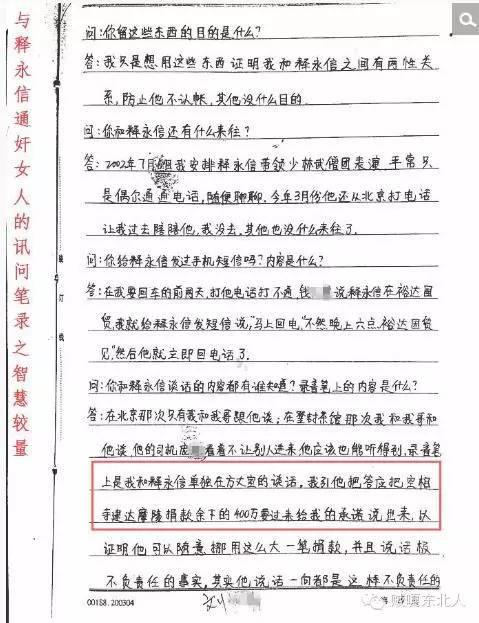 与释永信通奸女人的讯问笔录之智慧较量
问:你留这些东西的目的是什么?
答:我只是想用这些东西证明我和释永信之间有两性关
系,防止他不认帐,其他没什么目的.
问:你和释永信还有什么来往?
答:2002年7月 我安排释永信带领少林武僧团表演,平常只
是偶尔通通电话,随便聊聊.今年3月份他还从北京打电话
让我过去陪陪他,我没去,其他也没什么来往了.
问:你给释永信发过手机短信吗?内容是什么?
答:在我要回车的前两天,打他电话打不通,钱 说,释永信在裕达国
贸,我就给释永信发短信说,"马上回电,"不然晚上六点,裕达国贸
见,"然后他就立即回电话了.
问:你和释永信谈话的内容都有谁知道?录音笔上的内容是什么?
答:在北京那次只有我和我哥跟他谈;在登封 那次我和我哥和
他谈,他的司机 看着不让别人进来,他应该也能听得到,录音笔
上是我和释永信单独在方丈室的谈话,我引他把答应把空相
寺建达摩陵捐款余下的400万要过来给我的承诺说出来,以
证明他可以随意挪用这么大一笔捐款,并且说话极
不负责任的事实,其实他说话一向都是这样不负责任的
装订线
00158.200304
贼嘎东北人